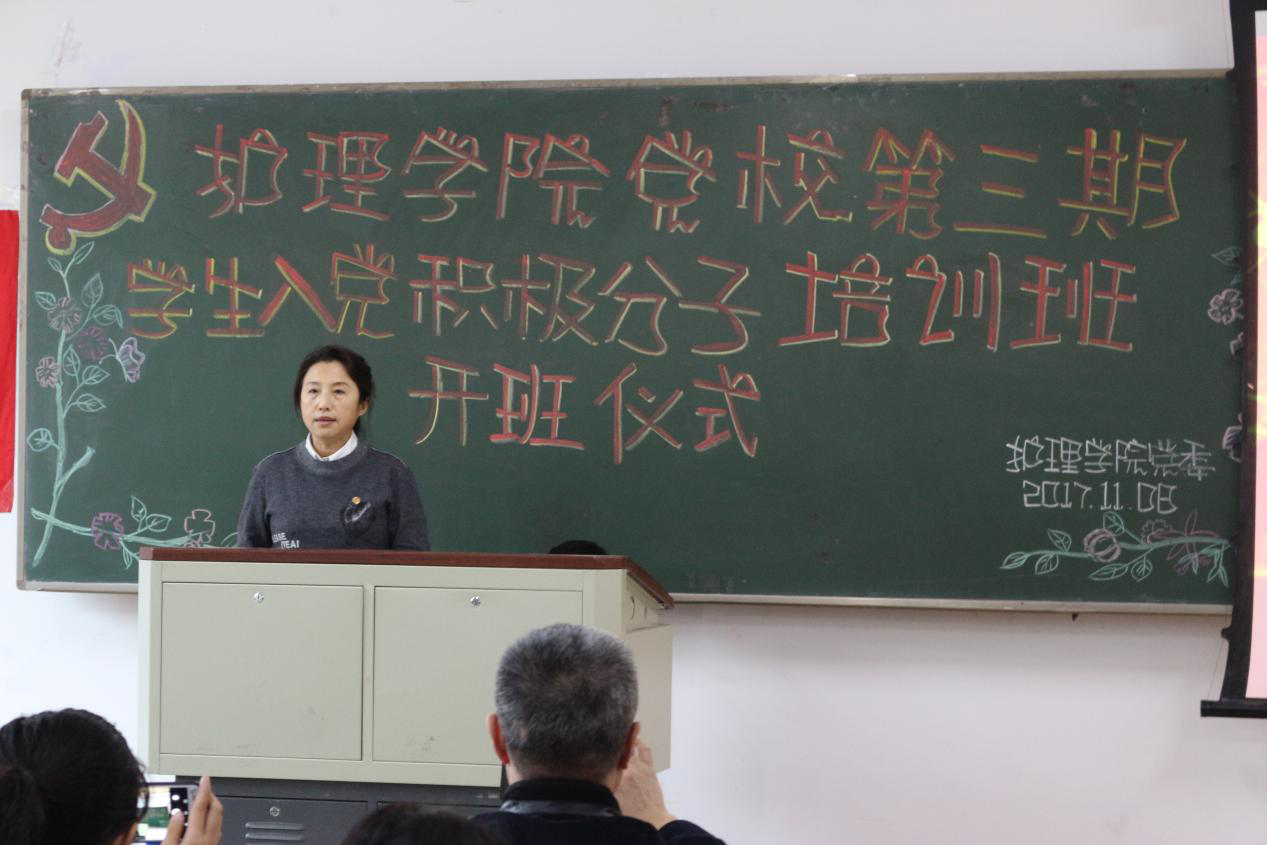 护理学院党校第三期
学生入党积极分子培训班
开班仪式
护理学院党委
2017.11.08